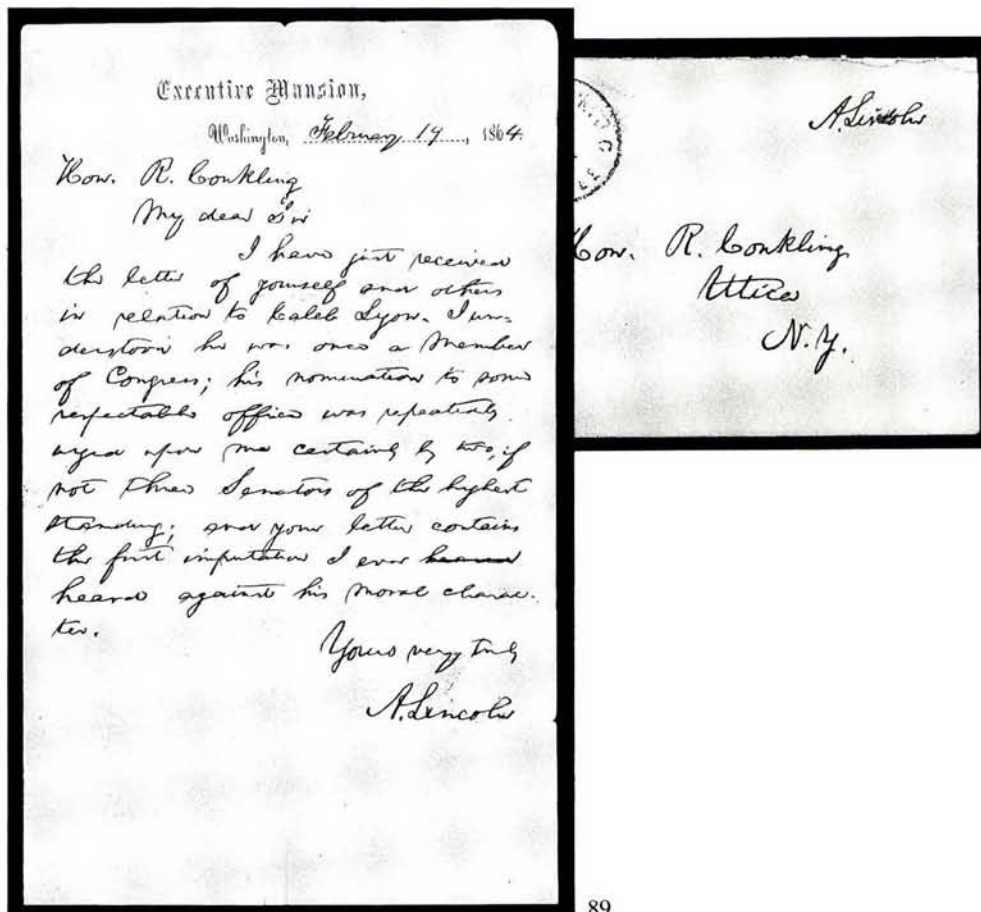 Executive Mansion,
Washington, February 19, 1864.
Hon. R. Conkling
My dear Sir
I have just received
the letter of yourself and others
in relation to Caleb Lyon. I un-
derstood he was once a Member
of Congress; his nomination to some
respectable office was repeatedly
urged upon me certainly by two, if
not three Senators of the highest
standing; and your letter contains
the first imputation I ever heard
heard against his moral charac-
ter.
Yours very truly
A. Lincoln
A. Lincoln
Hon. R. Conkling
Utica
N.Y.
89